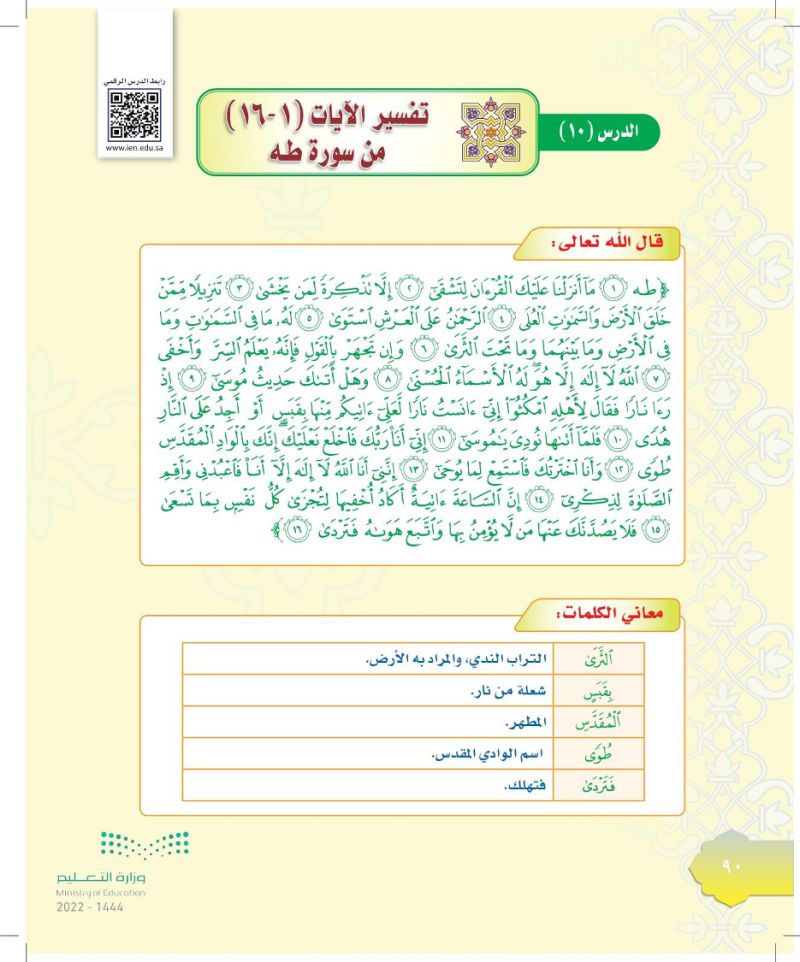 رابط الدرس الرقمي
www.ien.edu.sa
الدرس (١٠)
تفسير الآيات (١-١٦)
من سورة طه
قال الله تعالى:
﴿طه ١ مَآ أَنزَلْنَا عَلَيْكَ ٱلْقُرْءَانَ لِتَشْقَىٰٓ ٢ إِلَّا تَذْكِرَةً لِّمَن يَخْشَىٰ ٣ تَنزِيلًا مِّمَّنْ
خَلَقَ ٱلْأَرْضَ وَٱلسَّمَٰوَٰتِ ٱلْعُلَى ٤ ٱلرَّحْمَٰنُ عَلَى ٱلْعَرْشِ ٱسْتَوَىٰ ٥ لَهُۥ مَا فِى ٱلسَّمَٰوَٰتِ وَمَا
فِى ٱلْأَرْضِ وَمَا بَيْنَهُمَا وَمَا تَحْتَ ٱلثَّرَىٰ ٦ وَإِن تَجْهَرْ بِٱلْقَوْلِ فَإِنَّهُۥ يَعْلَمُ ٱلسِّرَّ وَأَخْفَى
٧ ٱللَّهُ لَآ إِلَٰهَ إِلَّا هُوَ ۖ لَهُ ٱلْأَسْمَآءُ ٱلْحُسْنَىٰ ٨ وَهَلْ أَتَىٰكَ حَدِيثُ مُوسَىٰٓ ٩ إِذْ
رَءَا نَارًا فَقَالَ لِأَهْلِهِ ٱمْكُثُوٓا۟ إِنِّىٓ ءَانَسْتُ نَارًا لَّعَلِّىٓ ءَاتِيكُم مِّنْهَا بِقَبَسٍ أَوْ أَجِدُ عَلَى ٱلنَّارِ
هُدًى ١٠ فَلَمَّآ أَتَىٰهَا نُودِىَ يَٰمُوسَىٰٓ ١١ إِنِّىٓ أَنَا۠ رَبُّكَ فَٱخْلَعْ نَعْلَيْكَ ۖ إِنَّكَ بِٱلْوَادِ ٱلْمُقَدَّسِ
طُوًى ١٢ وَأَنَا ٱخْتَرْتُكَ فَٱسْتَمِعْ لِمَا يُوحَىٰٓ ١٣ إِنَّنِىٓ أَنَا ٱللَّهُ لَآ إِلَٰهَ إِلَّآ أَنَا۠ فَٱعْبُدْنِى وَأَقِمِ
ٱلصَّلَوٰةَ لِذِكْرِىٓ ١٤ إِنَّ ٱلسَّاعَةَ ءَاتِيَةٌ أَكَادُ أُخْفِيهَا لِتُجْزَىٰ كُلُّ نَفْسٍۭ بِمَا تَسْعَىٰ
١٥ فَلَا يَصُدَّنَّكَ عَنْهَا مَن لَّا يُؤْمِنُ بِهَا وَٱتَّبَعَ هَوَىٰهُ فَتَرْدَىٰ ١٦﴾
معاني الكلمات:
ٱلثَّرَىٰ التراب الندي، والمراد به الأرض.
بِقَبَسٍ شعلة من نار.
ٱلْمُقَدَّسِ المطهر.
طُوًى اسم الوادي المقدس.
فَتَرْدَىٰ فتهلك.
٩٠
وزارة التعليم
Ministry of Education
2022 - 1444